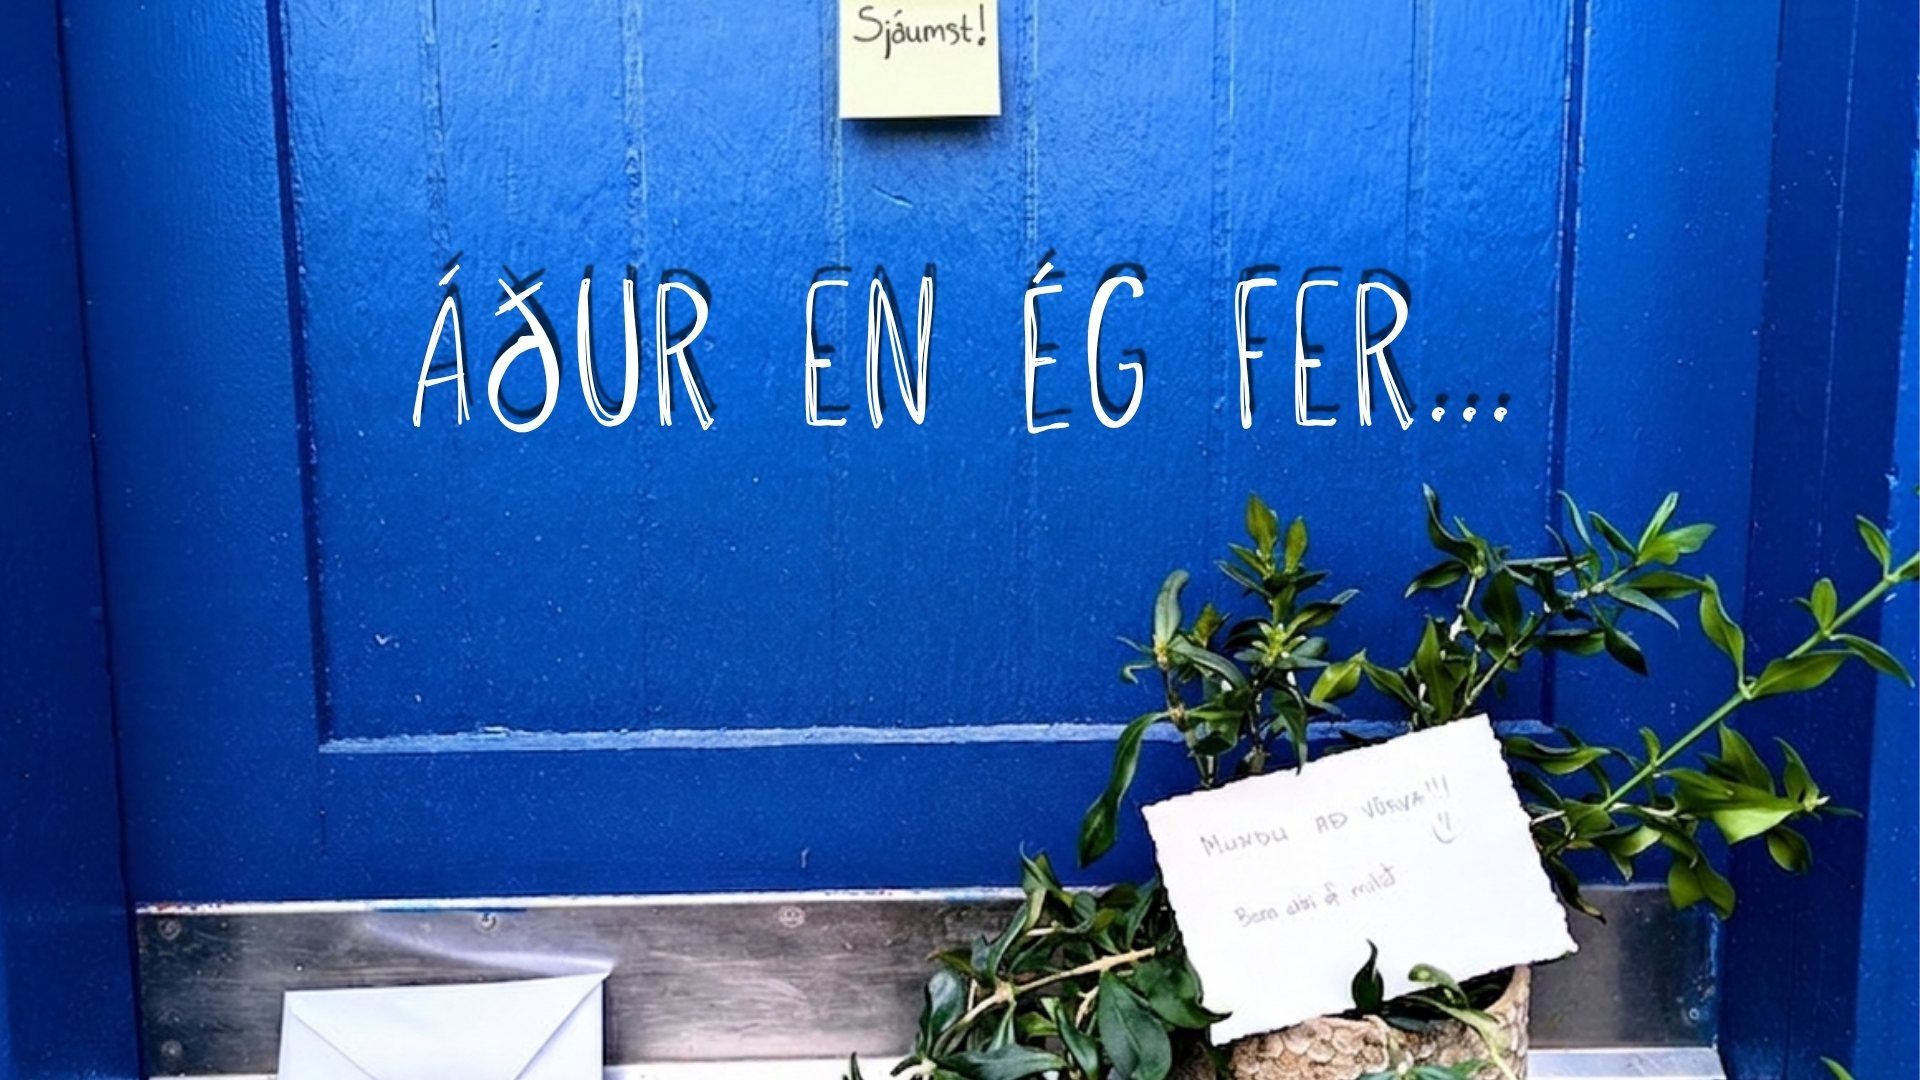 Sjáumst!
ÁÐUR EN ÉG FER...
MUNDU AÐ VÖKVA!!!
Bara ekki of mikið